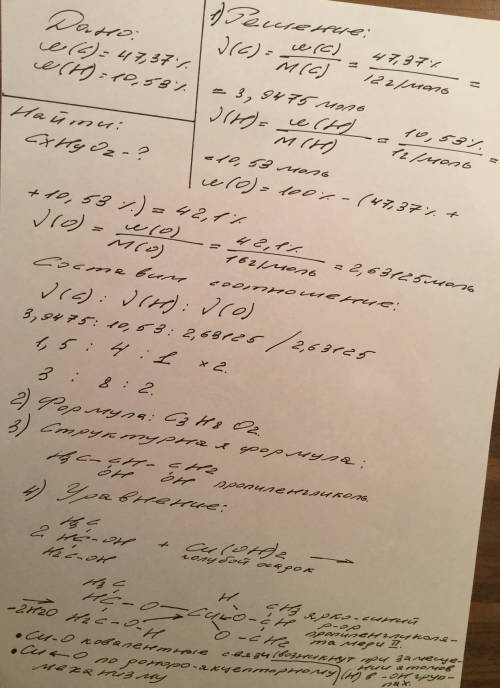 Дано:
w(C) = 47,37%
w(H) = 10,53%
Найти:
CxHyOz - ?
1) Решение:
ν(C) = w(C) / M(C) = 47,37% / 12г/моль =
= 3,9475 моль
ν(H) = w(H) / M(H) = 10,53% / 1г/моль =
= 10,53 моль
w(O) = 100% - (47,37% +
+ 10,53%) = 42,1%
ν(O) = w(O) / M(O) = 42,1% / 16г/моль = 2,63125 моль
Составим соотношение:
ν(C) : ν(H) : ν(O)
3,9475 : 10,53 : 2,63125 / 2,63125
1,5 : 4 : 1 ×2
3 : 8 : 2
2) Формула: C3H8O2
3) Структурная формула:
H3C - CH - CH2
OH OH пропиленгликоль
4) Уравнение:
H3C
2 HC-OH + Cu(OH)2 →
H2C-OH голубой осадок
H3C H
HC - O Cu O - CH CH3 ярко-синий
-2H2O H2C - O - H O - CH2 р-ор
пропиленгликоля-
та меди II.
• Cu-O ковалентные связи (возникнут при замеще-
нии атомов
• Cu←O по доторо-акцепторному (H) в -OH груп-
механизму пах.